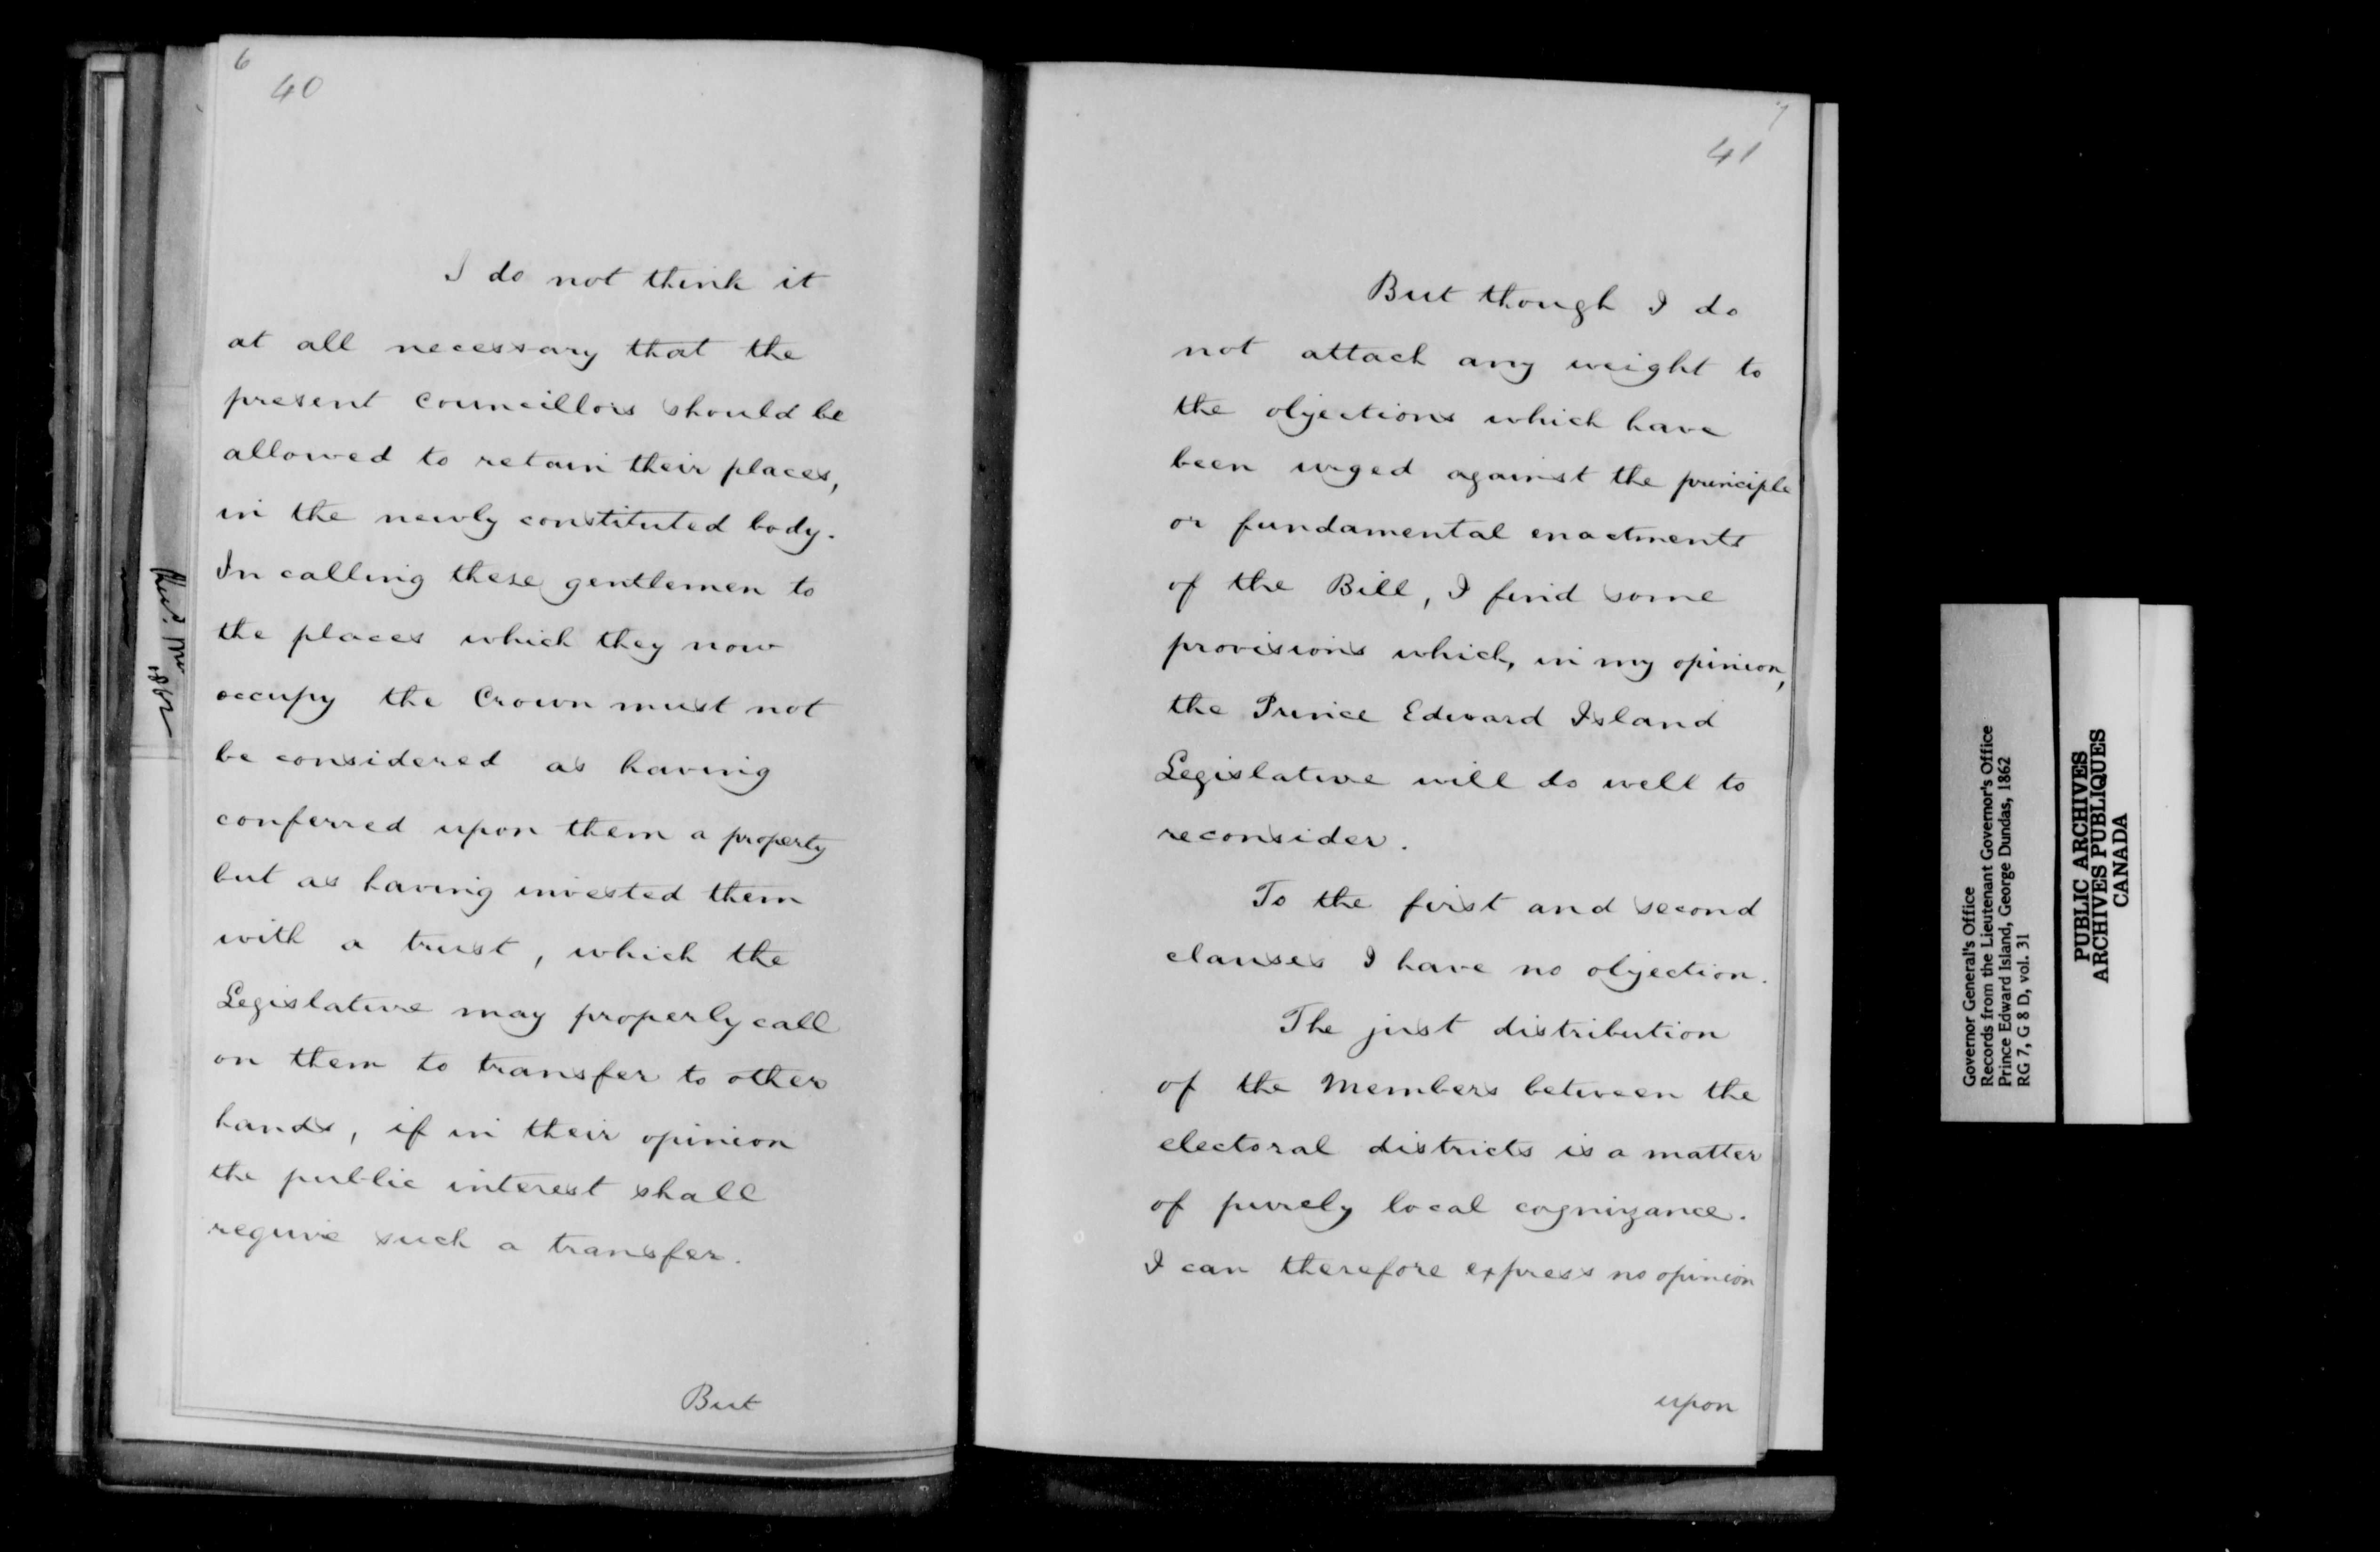 6
40
I do not think it
at all necessary that the
present Councillors should be
allowed to retain their places,
in the newly constituted body.
In calling these gentlemen to
the places which they now
occupy the Crown must not
be considered as having
conferred upon them a property
but as having invested them
with a trust, which the
Legislature may properly call
on them to transfer to other
hands, if in their opinion
the public interest shall
require such a transfer.
But
7
41
But though I do
not attach any weight to
the objections which have
been urged against the principle
or fundamental enactments
of the Bill, I find some
provisions which, in my opinion,
the Prince Edward Island
Legislature will do well to
reconsider.
To the first and second
clauses I have no objection.
The just distribution
of the Members between the
electoral districts is a matter
of purely local cognizance.
I can therefore express no opinion
upon
Governor General's Office
Records from the Lieutenant Governor's Office
Prince Edward Island, George Dundas, 1862
RG 7, G 8 D, vol. 31
PUBLIC ARCHIVES
ARCHIVES PUBLIQUES
CANADA